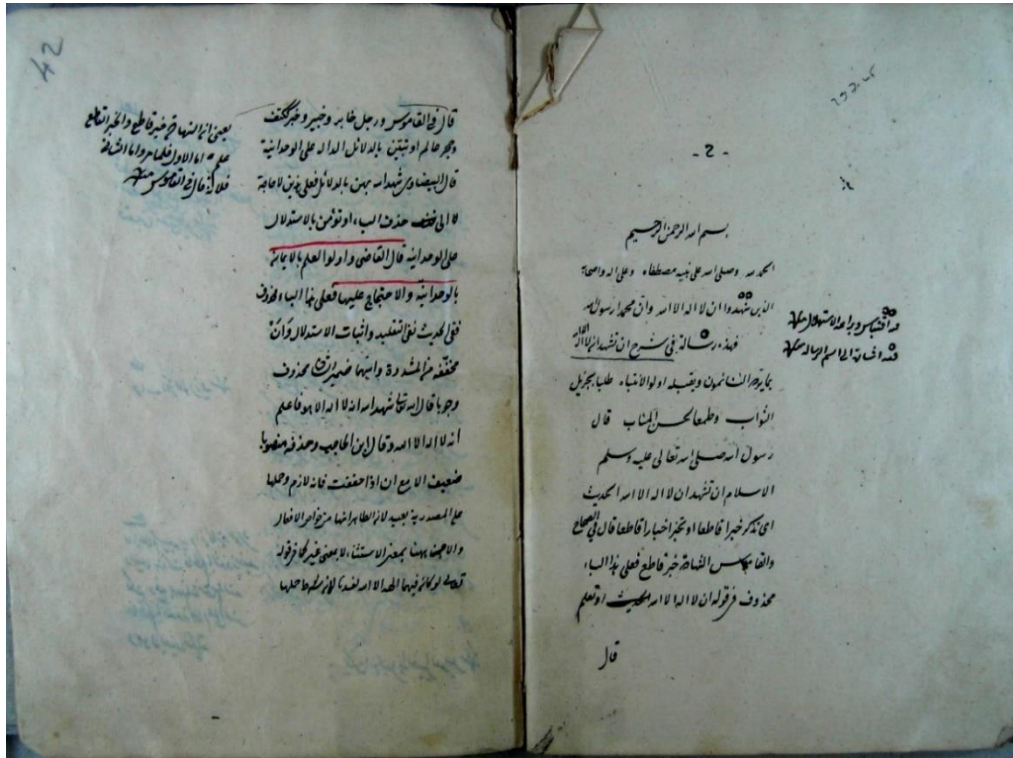 - 2 -
بسم الله الرحمن الرحيم
الحمد لله وصلى الله على نبيه مصطفاه وعلى اله واصحابه
الذين شهدوا ان لا اله الا الله وان محمدا رسول الله
فهذه رسالة في شرح ان تشهد ان لا اله الا الله
ويقبله اولو الانتباه طلبا لجزيل
الثواب وطمعا لحسن المناب قال
رسول الله صلى الله تعالى عليه وسلم
الاسلام ان تشهد ان لا اله الا الله الحديث
اى تذكر خبرا قاطعا او تخبر اخبارا قاطعا قال في الصحاح
والقاموس الشهادة خبر قاطع فعلى هذا الباء
محذوف في قوله ان لا اله الا الله الحديث او تعلم
قال
فيه اقتباس وبراعة الاستهلال منه
فيه اشارة الى اسم الرسالة منه
42
قال في القاموس ورجل خابر وخبير وخبر ككتف
وحجر عالم او تبين بالدلائل الداله على الوحدانية
قال البيضاوى شهد الله بين بالدلائل فعلى هذين لا حاجة
لا الى حذف الباء او تؤمن بالاستدلال
على الوحدانيه قال القاضى واولوا العلم بالايمان
بالوحدانية والاحتجاج عليها فعلى هذا الباء محذوف
ففى الحديث نفى التقليد واثبات الاستدلال وان
مخففة من المشددة واسمها ضمير الشان محذوف
وجوبا قال الله تعالى شهد الله انه لا اله الا هو فاعلم
انه لا اله الا الله وقال ابن الحاجب وحذفه منصوبا
ضعيف الا مع ان اذا خففت فانه لازم وحملها
على المصدرية بعيد لان الظاهر انها من خواص الافعال
والا ههنا بمعنى الاستثناء لا بمعنى غير كما في قوله
تعالى لو كان فيهما الهة الا الله لفسدتا لان شرط حملها
يعنى ان الشهادة خبر قاطع والخبر القاطع
علم اما الاول فلما مر واما الثانى
فلانه قال في القاموس منه